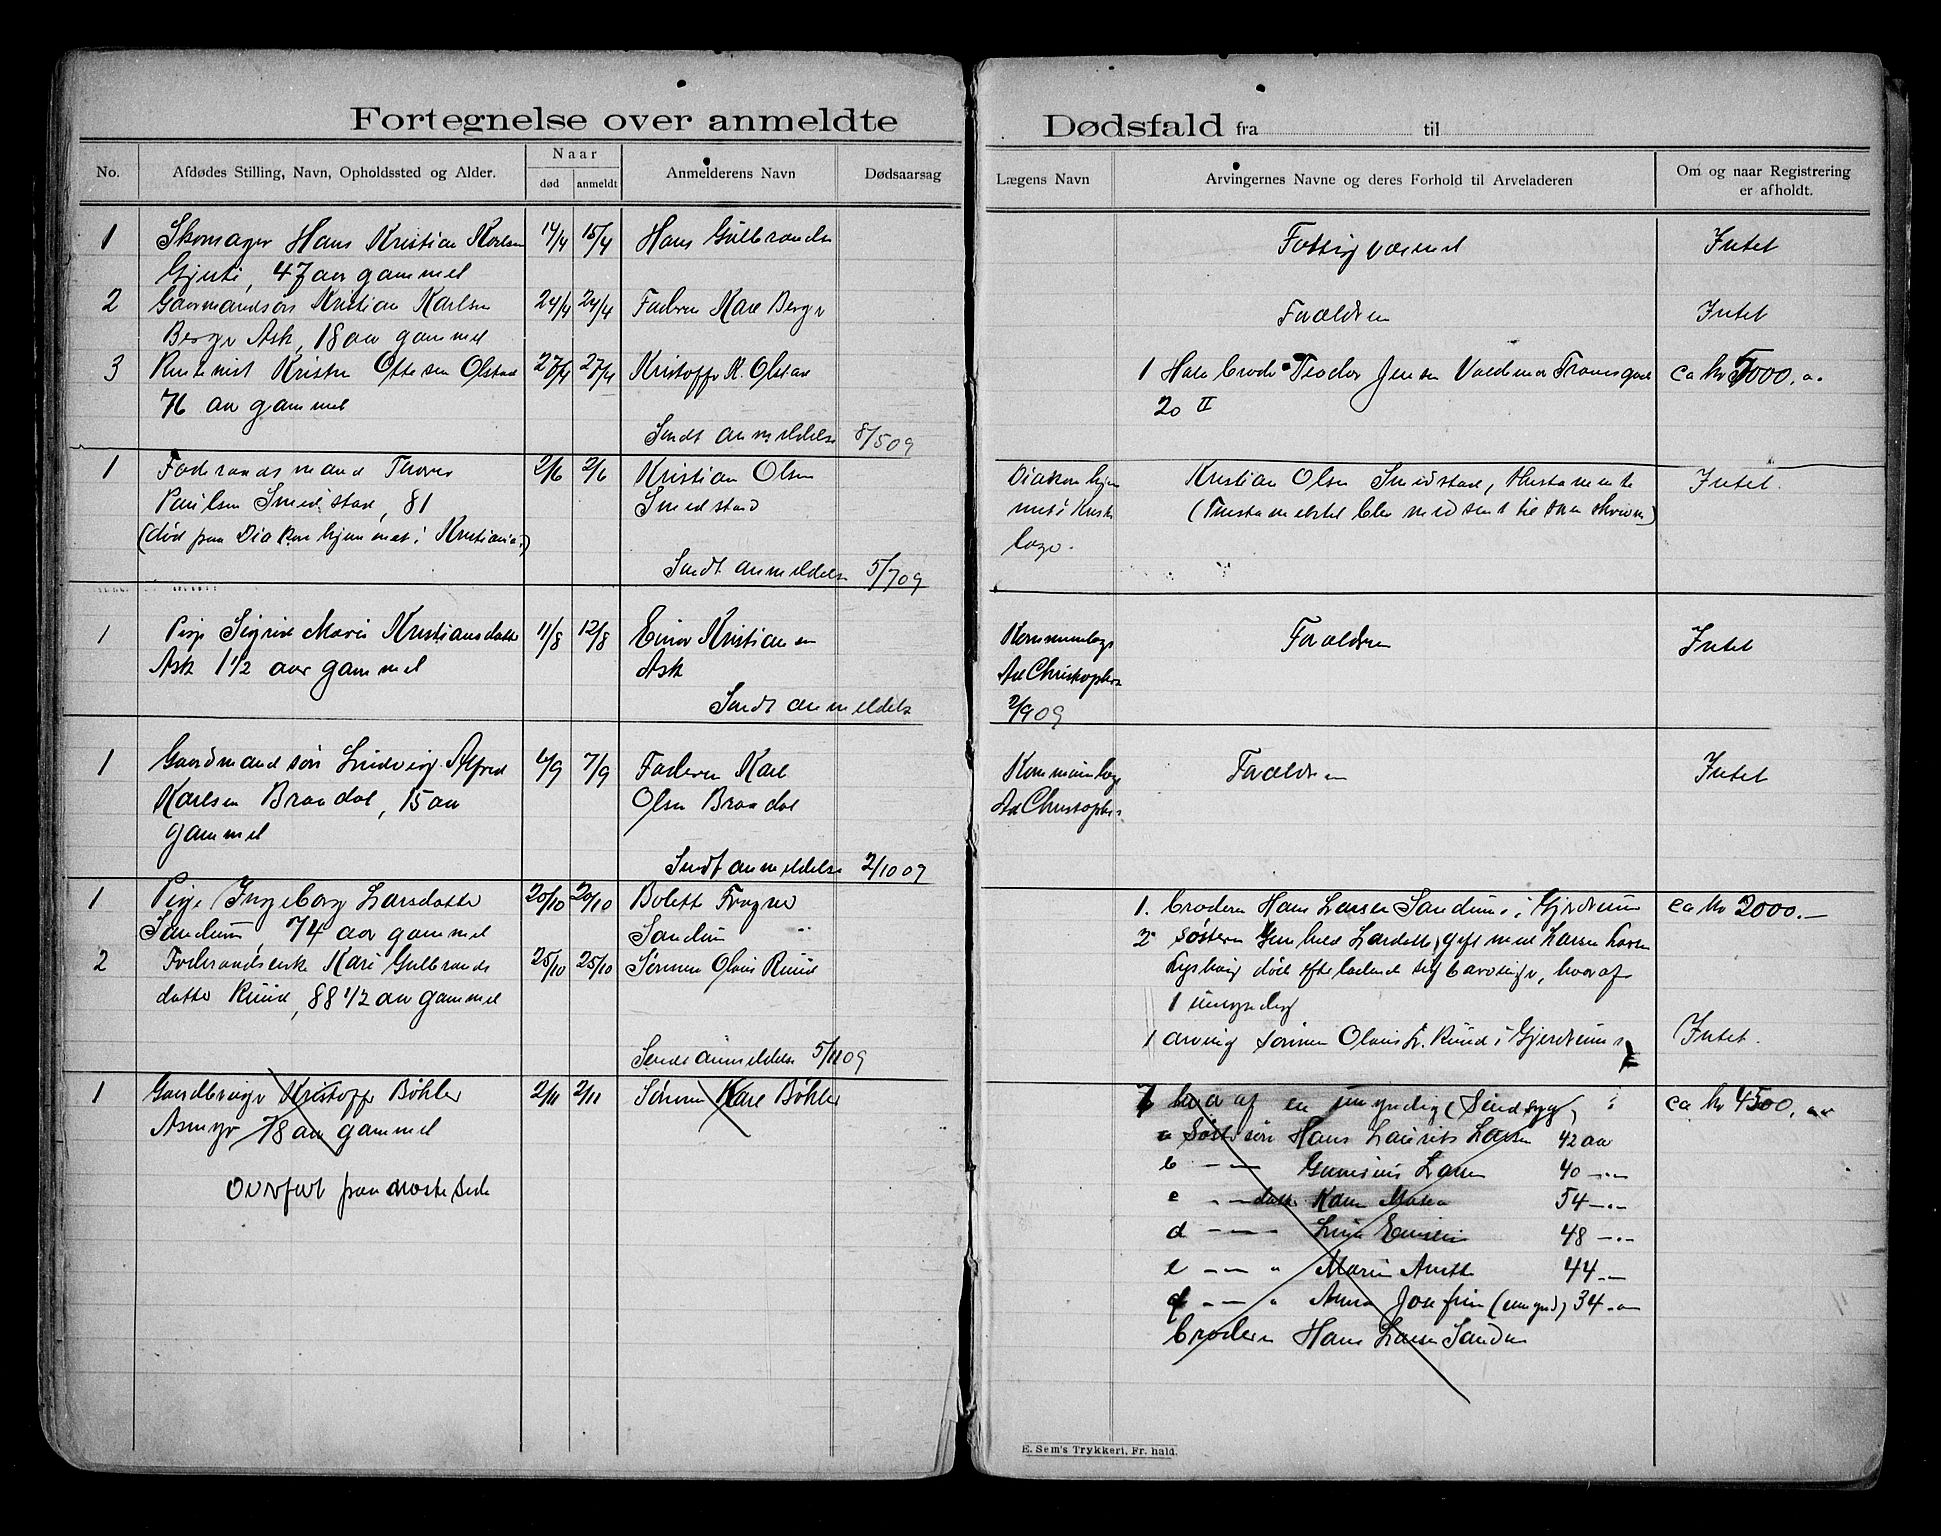 Fortegnelse over anmeldte
No.
Afdødes Stilling, Navn, Opholdssted og Alder.
Naar
død
anmeldt
Anmelderens Navn
Dødsaarsag
1 Skomager Hans Kristian Karlsen 14/4 15/4 Hans Gulbrandse
47 aar gammel
2 Gaardmandsøn Kristian Karlsen 24/4 24/4 Faderen Karl Berger
Berger Ask, 18 aar gammel
3 Kristen Ottesen Olstad 27/4 27/4 Kristoffer K. Olstad
76 aar gammel
Sendt anmeldelse 8/5 09
1 Føderaadsmand Thorer 2/6 2/6 Kristian Olsen
Paulsen Smedstad, 81 Smedstad
(død paa Diakonhjemmet i Kristiania)
Sendt anmeldelse 5/7 09
1 Pige Sigrid Marie Kristiansdatter 11/8 12/8 Einar Kristiansen
Ask 1 1/2 aar gammel Ask
Sendt anmeldelse
1 Gaardmandsøn Ludvig Alfred 6/9 7/9 Faderen Karl
Karlsen Braadal, 15 aar Olsen Braadal
gammel
Sendt anmeldelse 2/10 09
1 Pige Ingeborg Larsdatter 20/10 20/10 Bolette Frogner
Sandum, 74 aar gammel Sandum
2 Føderaadsenke Kari Gulbrands 25/10 25/10 Sønnen Olaus Ruud
datter Ruud, 88 1/2 aar gammel
Sendt anmeldelse 5/11 09
1 Gaardbruger Kristoffer Bøhler 2/11 2/11 Sønnen Karl Bøhler
Asmyr 78 aar gammel
Overført paa næste side
Dødsfald fra til
Lægens Navn
Arvingernes Navne og deres Forhold til Arveladeren
Om og naar Registrering
er afholdt.
Fattigvæsenet Intet
Forældrene Intet
1 Halvbroder Teodor Jensen Valdemar Thranesgade ca kr 5000.
20 II
Diakonhjem Kristian Olsen Smedstad, Intet.
mets (Testamentet blev medsendt til Sorenskriveren)
læge.
Kommunelæge Forældrene Intet
Ad Christophersen
2/9 09
Kommunelæge Forældrene Intet
Ad Christophersen
1. Broderen Hans Larsen Sandum i Gjerdrum ca kr 2000.—
2 Søsteren Gunhild Larsdatter, gift med Larsen
død efterladende sig 7 livsarvinger, hvoraf
1 umyndig
1 arving sønnen Olaus L. Ruud i Gjerdrum Intet.
7 hvoraf en umyndig (Sindssyg) ca kr 4500.
a Søstersøn Hans Laurits Larsen 42 aar
b — — Larsen 40 — " —
c " — datter Karen Maria 54 — " —
d — — — Lina 48 — " —
e — — " Maren Anette 44 —
f — — " Anna Josefine (umynd) 34 — " —
Broderen Hans Larsen Sandum
E. Sem's Trykkeri, Fr. hald.